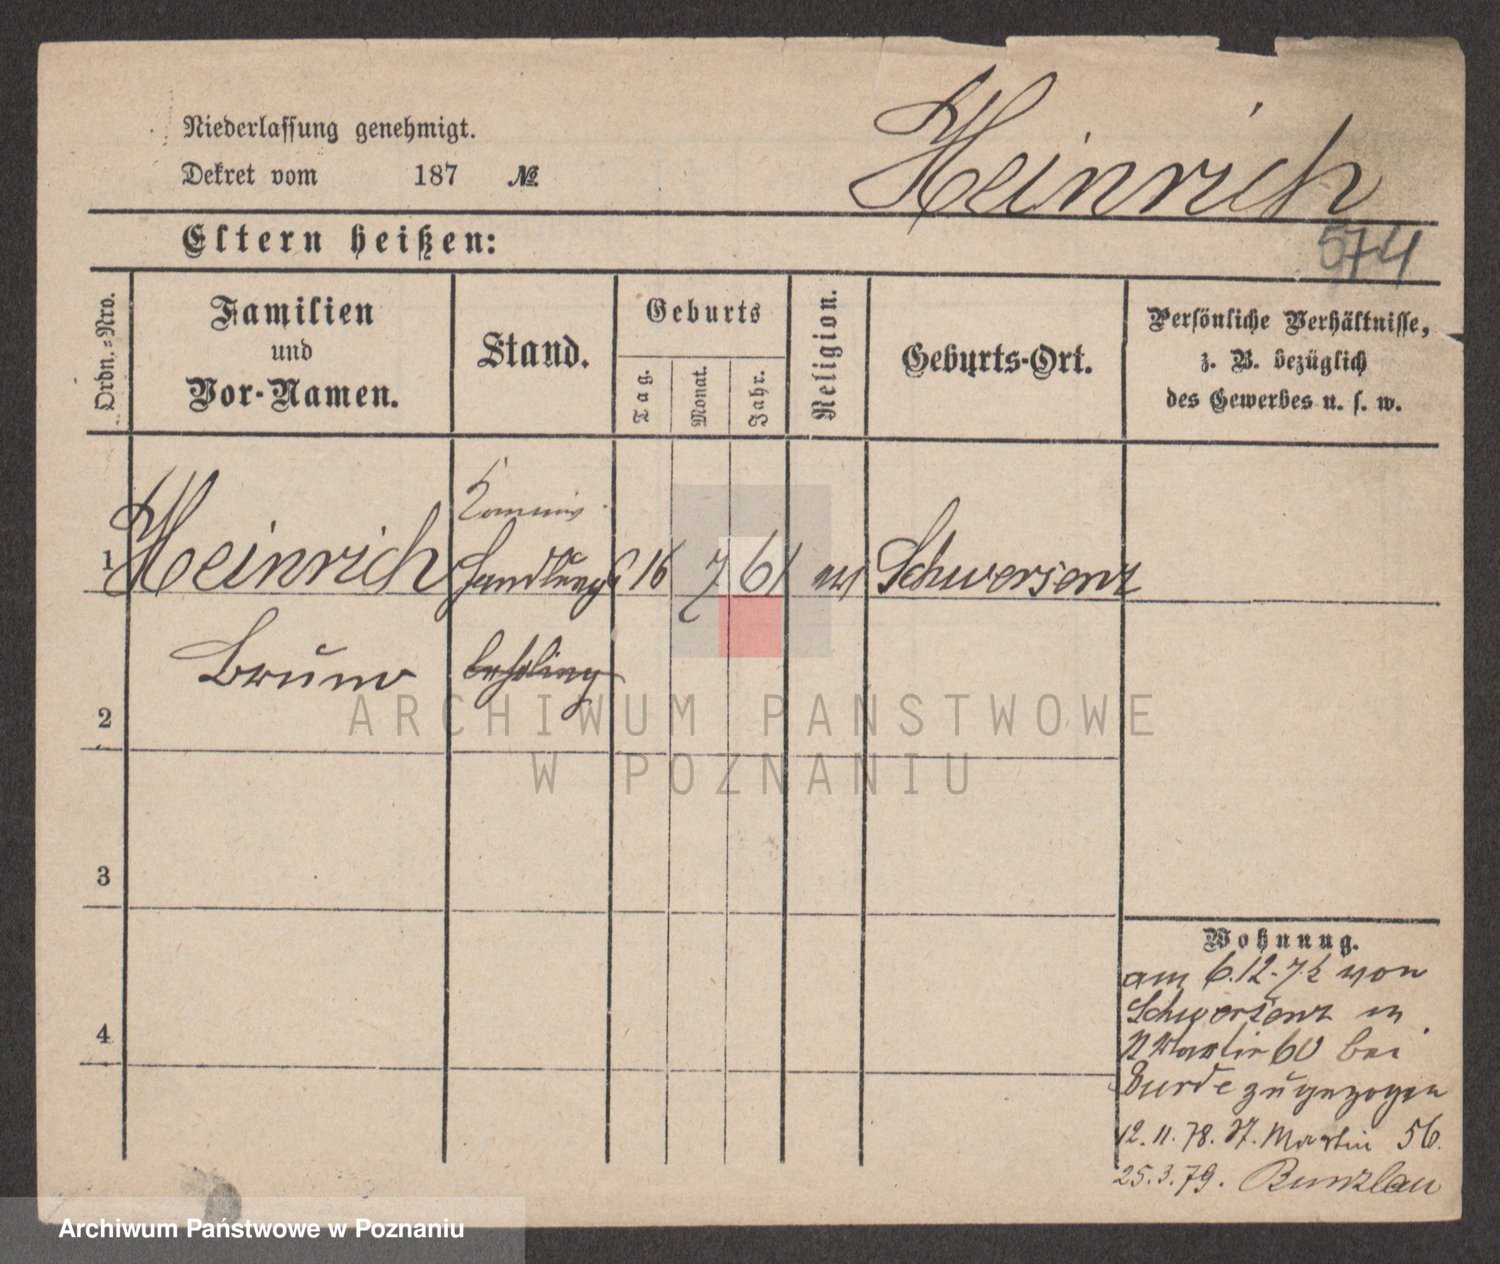 Niederlassung genehmigt.
Dekret vom 187 №
Heinrich
574
Eltern heißen:
Ordn.=Nro.
Familien
und
Vor-Namen.
Stand.
Geburts
Tag.
Monat.
Jahr.
Religion.
Geburts-Ort.
Persönliche Verhältnisse,
z. B. bezüglich
des Gewerbes u. s. w.
Kommis
1 Heinrich Handlungs 16 7 61 Schwersenz
Bruno
2
lehrling
3
4
Wohnung.
am 6.12.7 von
Schwersenz in
Martin 60 bei
zugezogen
12.11.78. St. Martin 56.
25.3.79. Bunzlau
ARCHIWUM PAŃSTWOWE
W POZNANIU
Archiwum Państwowe w Poznaniu